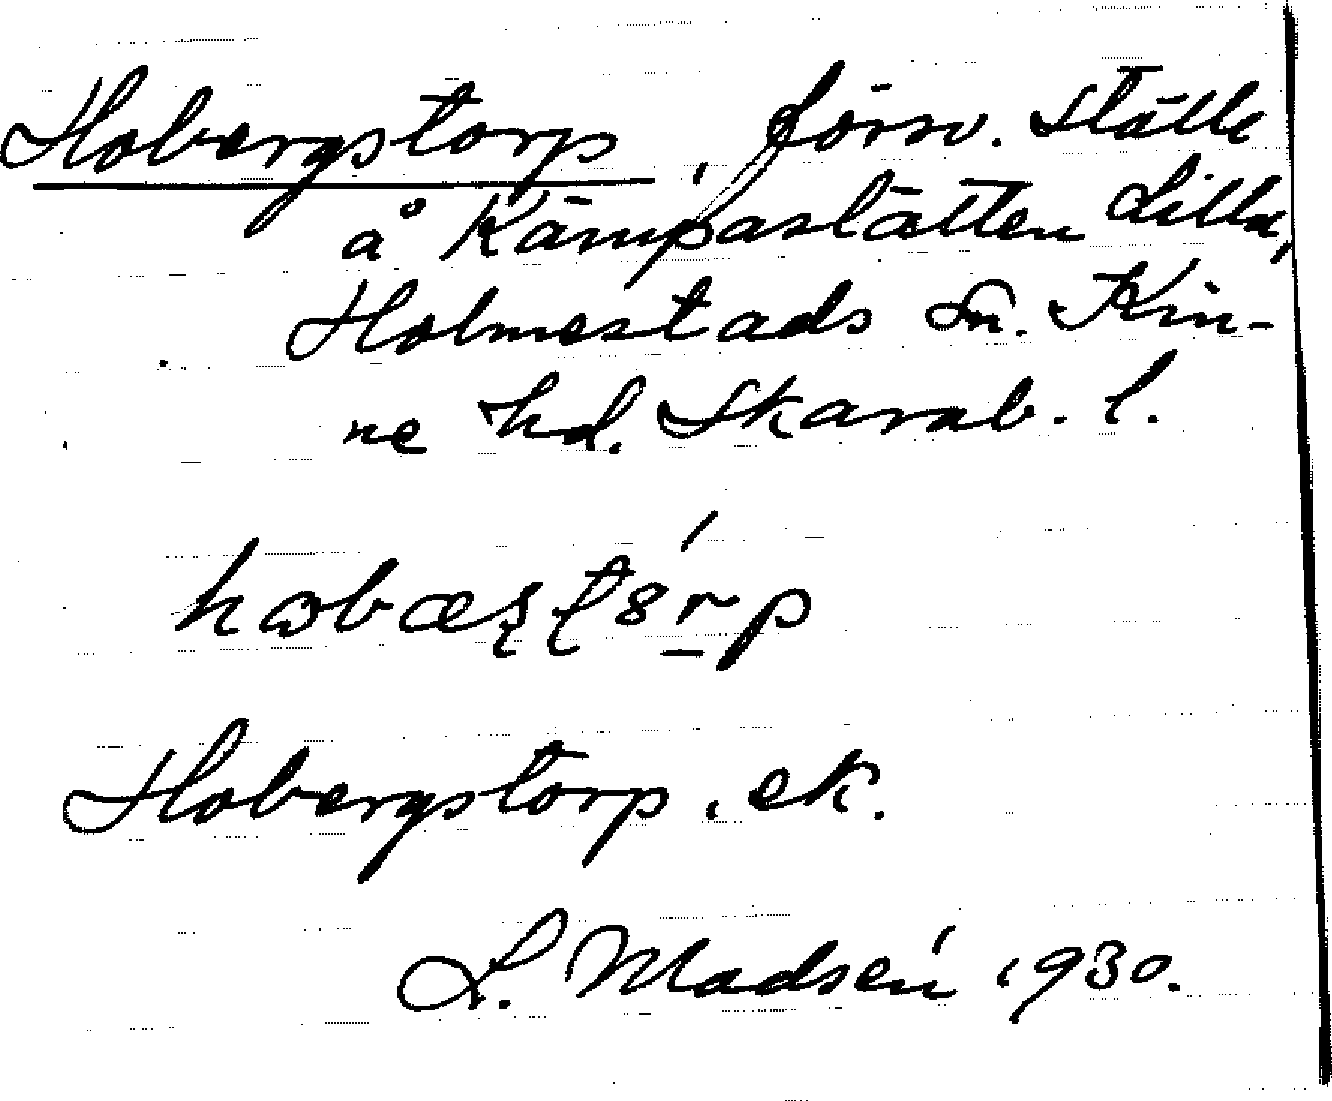 Hobergstorp, försv. ställe
å Kämpaslätten Lilla,
Holmestads sn. Kin-
ne hd. Skarab. l.
Hobergstorp, ek.
L. Madsén 1930.